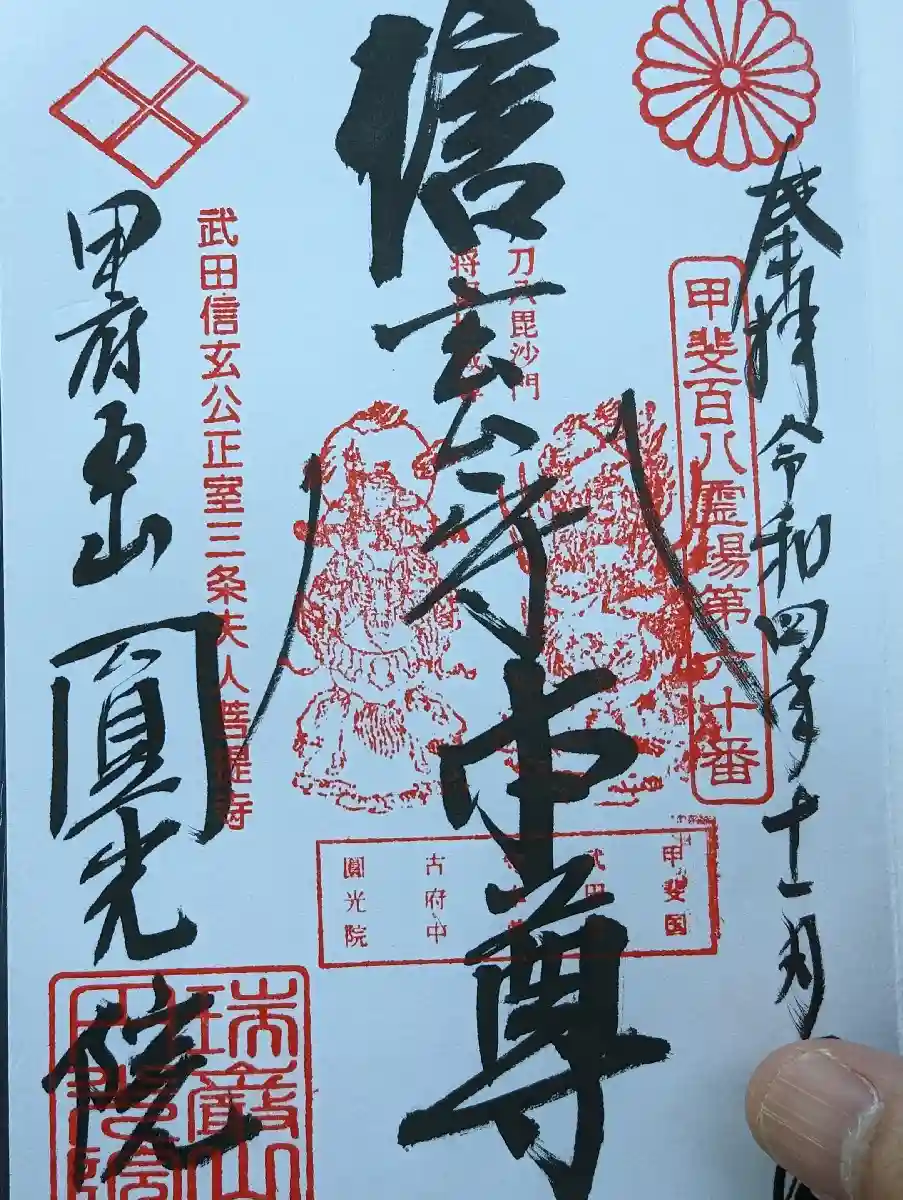 奉拝 令和四年十一月
甲斐百八霊場第六十番
信玄公守本尊
刀八毘沙門
甲斐国
古府中
圓光院
武田信玄公正室三条夫人菩提寺
甲府五山 圓光院
瑞巌山
圓光院